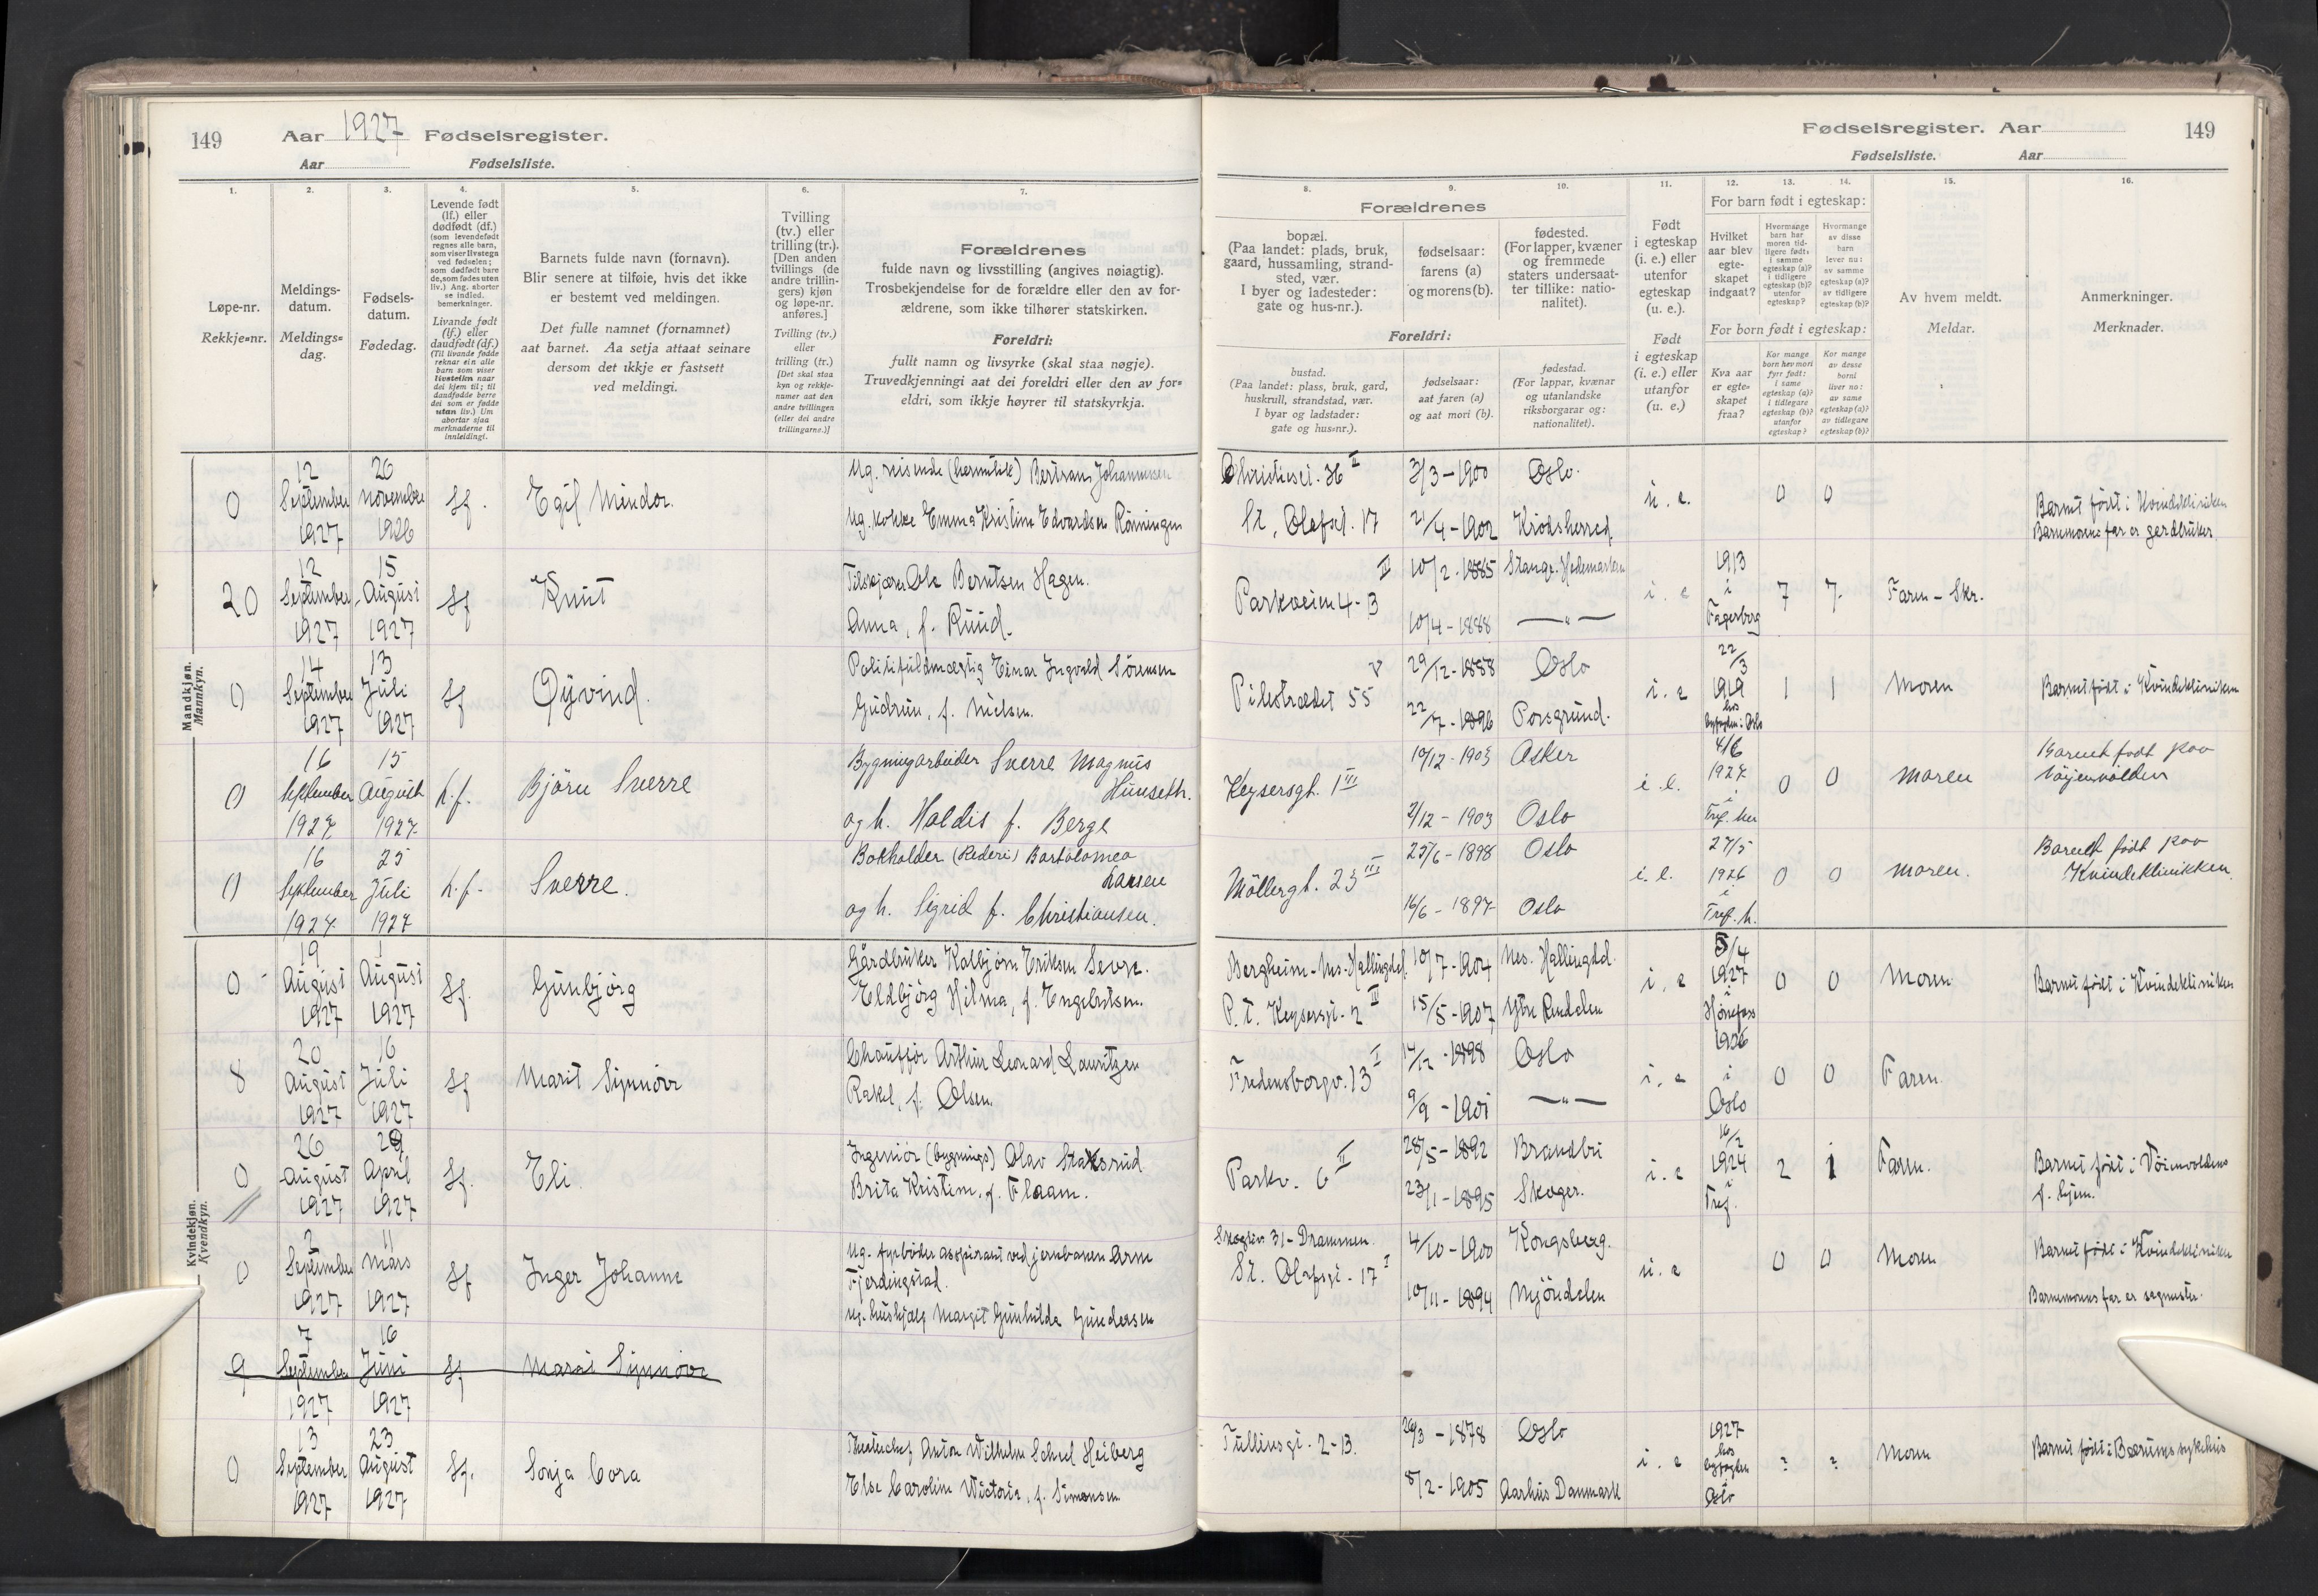 149 Aar 1927 Fødselsregister.
Aar Fødselsliste.
Fødselsregister. Aar 149
Fødselsliste. Aar
1. 2. 3. 4. 5. 6. 7.
Løpe-nr.
Rekkje=nr.
Meldings-
datum.
Meldings=
dag.
Fødsels-
datum.
Fødedag.
Levende født
(lf.) eller
dødfødt (df.)
(som levendefødt
regnes alle barn,
som viser livstegn
ved fødselen;
som dødfødt bare
de, som fødes uten
liv.) Ang. aborter
se indled.
bemerkninger.
Livande født
(lf.) eller
daudfødt (df.)
(Til livande fødde
reknar ein alle
barn som viser
livsteikn naar
dei kjem til; til
daudfødde berre
dei som er fødde
utan liv.) Um
abortar sjaa
merknaderne til
innleidingi.
Barnets fulde navn (fornavn).
Blir senere at tilføie, hvis det ikke
er bestemt ved meldingen.
Det fulle namnet (fornamnet)
aat barnet. Aa setja attaat seinare
dersom det ikkje er fastsett
ved meldingi.
Tvilling
(tv.) eller
trilling (tr.).
[Den anden
tvillings (de
andre trillin-
gers) kjøn
og løpe-nr.
anføres.]
Tvilling (tv.)
eller
trilling (tr.)
[Det skal staa
kyn og rekkje-
numer aat den
andre tvillingen
(eller dei andre
trillingarne.)]
Forældrenes
fulde navn og livsstilling (angives nøiagtig).
Trosbekjendelse for de forældre eller den av for-
ældrene, som ikke tilhører statskirken.
Foreldri:
fullt namn og livsyrke (skal staa nøgje).
Truvedkjenningi aat dei foreldri eller den av for=
eldri, som ikkje høyrer til statskyrkja.
8. 9. 10. 11. 12. 13. 14. 15. 16.
Forældrenes
bopæl.
(Paa landet: plads, bruk,
gaard, hussamling, strand-
sted, vær.
I byer og ladesteder:
gate og hus-nr.).
fødselsaar:
farens (a)
og morens (b).
fødested.
(For lapper, kvæner
og fremmede
staters undersaat-
ter tillike: natio-
nalitet).
Foreldri:
bustad.
(Paa landet: plass, bruk, gard,
huskrull, strandstad, vær.
I byar og ladstader:
gate og hus=nr.).
fødselsaar:
aat faren (a)
og aat mori (b).
fødestad.
(For lappar, kvænar
og utanlandske
riksborgarar og:
nationalitet).
Født
i egteskap
(i. e.) eller
utenfor
egteskap
(u. e.).
Født
i egteskap
(i. e.) eller
utanfor
egteskap
(u. e.)
For barn født i egteskap:
Hvilket
aar blev
egte-
skapet
indgaat?
Hvormange
barn har
moren tid-
ligere født:
i samme
egteskap (a)?
i tidligere
egteskap (b)?
utenfor
egteskap?
Hvormange
av disse
barn
lever nu:
av samme
egteskap (a)?
av tidligere
egteskap (b)?
For born født i egteskap:
Kva aar
er egte-
skapet
fraa?
Kor mange
born hev mori
fyrr født:
i same
egteskap (a)?
i tidlegare
egteskap (b)?
utanfor
egteskap?
Kor mange
av desse
borni
liver no:
av same
egteskap (a)?
av tidlegare
egteskap (b)?
Av hvem meldt.
Meldar.
Anmerkninger.
Merknader.
Mandkjøn.
Mannkyn.
0 12 September 1927 26 november 1926 Lf. Egil Mindor.
Ug. reisende Bertram Johannesen
Ug. kokke Emma Kristine Edvardsen Rönningen
36 II 3/3-1900 Oslo. u. e. 0 0
St. Olafsgt. 17 21/4-1902 Krödsherred
Barnet født i Kvindekliniken
Barnemorens far er gardbruker
20 12 September 1927 15 August 1927 Lf Knut
Ole Berntsen Hagen.
Anna, f. Ruud.
Parkveien 4-B III 10/2-1885 Stange. Hedemarken
10/4-1888 —"—
i. e 1913 i Fagerborg 7 7. Faren - Skr.
0 14 September 1927 13 Juli 1927 Lf Øyvind.
Politifuldmægtig Einar Ingvald Sörensen
Gudrun, f. Nielsen.
Pilestrædet 55 V 29/12-1888 Oslo
22/7-1896 Porsgrund.
i. e 22/3 1919 hos byfogden i Oslo 1 1 Moren Barnet født i Kvindekliniken
0 16 September 1927 15 August 1927 L.f. Björn Sverre
Bygningsarbeider Sverre Magnus
Hunseth.
og h. Haldis f. Berge
Keysersgt. 1 III 10/12-1903 Asker
2/12-1903 Oslo
i. e. 4/6 1927 i Tref. ku 0 0 Moren
Barnet født paa
Vöyenvolden
0 16 September 1927 25 Juli 1927 L.f. Sverre.
Bokholder (Rederi) Bartolomeo
Larsen
og h. Sigrid f. Christiansen.
Möllergt. 23 III 25/6-1898 Oslo
16/6-1897 Oslo
i. e. 27/5 1926 i Tref. k. 0 0 Moren.
Barnet født paa
Kvindeklinikken.
Kvindekjøn.
Kvendkyn.
0 19 August 1927 1 August 1927 Lf. Gunbjörg
Gårdbruker Kolbjörn Eriksen Sevre.
Eldbjörg Hilma, f. Engebretsen.
Bergheim-Nes-Hallingdal. 10/7-1904 Nes. Hallingdal.
P.t. Keysersgt. 2 II 15/5-1907 Ytre Rendalen
i. e 5/4 1927 i Hönefoss 0 0 Moren Barnet født i Kvindekliniken
8 20 August 1927 16 Juli 1927 Lf Marit Synnöve
Chauffør Arthur Leonard Lauritzen
Rakel, f. Olsen.
Fredensborgv. 13 I 14/12-1898 Oslo
9/9-1901 —"—
i. e 1926 i Oslo 0 0 Faren.
0 26 August 1927 29 April 1927 Lf. Eli
Ingeniör (bygnings) Olav Staksrud
Brita Kristine, f. Flaam.
Parkv. 6 II 28/5-1892 Brandbu
23/1-1895 Skoger.
i. e 16/2 1924 i Tref. 2 1 Faren.
Barnet født i Vöienvoldens
f. hjem.
0 2 September 1927 11 Mars 1927 Lf Inger Johanne
Ug. fyrböder aspirant ved jernbanen Arne
Fjerdingstad.
Ug. hushjælp Margit Gunhilda Gundersen
31-Drammen. 4/10-1900 Kongsberg.
St. Olafsgt. 17 I 10/11-1894 Mjöndalen
u. e 0 0 Moren
Barnet født i Kvindekliniken
Barnemorens far er sagmester.
9 7 September 1927 16 Juni 1927 Lf Marit Synnöve
0 13 September 1927 23 August 1927 Lf. Sonja Cora
Anton Wilhelm Scheel Heiberg
Else Caroline Victoria, f. Simonsen
Tullinsgt. 2-B. 26/3-1878 Oslo
8/2-1905 Aarhus Danmark
i. e 1927 hos byfogden Oslo ? ? Moren Barnet født i Bærums sykehus